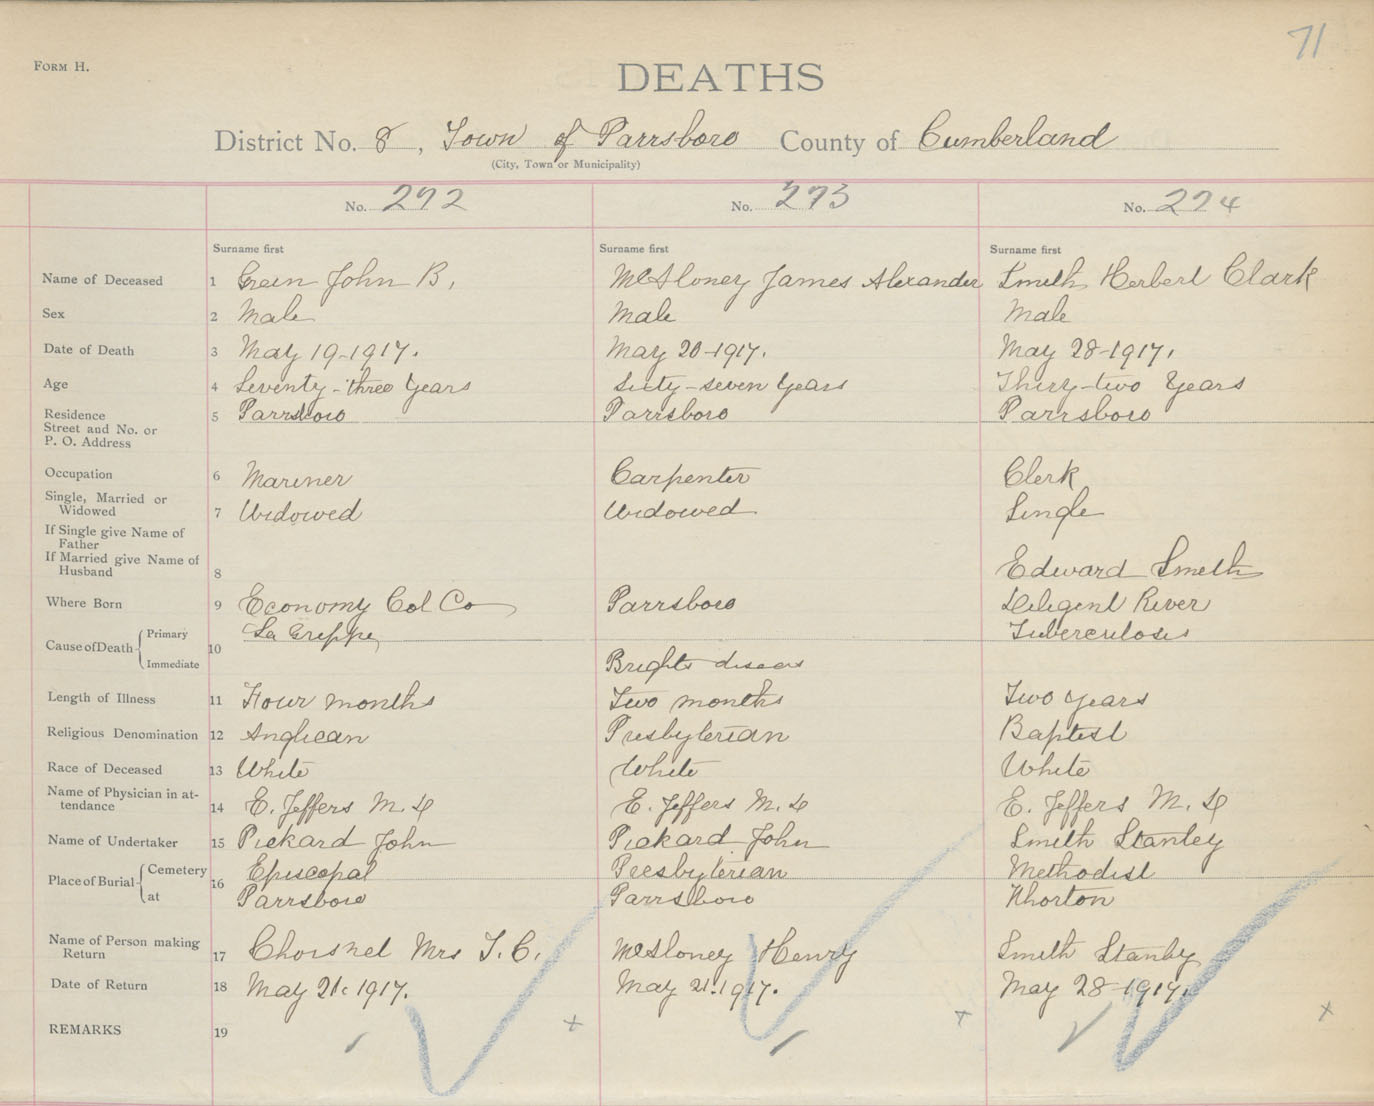 71
FORM H.
DEATHS
District No. 8, Town of Parrsboro County of Cumberland
(City, Town or Municipality)
No. 272 No. 273 No. 274
Surname first Surname first Surname first
Name of Deceased 1 Green John B. McAloney James Alexander Smith Herbert Clark
Sex 2 Male Male Male
Date of Death 3 May 19-1917. May 20-1917. May 28-1917.
Age 4 Seventy-three Years Sixty-seven Years Thirty-two Years
Residence Street and No. or P. O. Address 5 Parrsboro Parrsboro Parrsboro
Occupation 6 Mariner Carpenter Clerk
Single, Married or Widowed 7 Widowed Widowed Single
If Single give Name of Father
If Married give Name of Husband 8 Edward Smith
Where Born 9 Economy Col Co Parrsboro Diligent River
Cause of Death Primary La Grippe Tuberculosis
10
Immediate Brights diseas
Length of Illness 11 Four months Two months Two years
Religious Denomination 12 Anglican Presbyterian Baptist
Race of Deceased 13 White White White
Name of Physician in attendance 14 E. Jeffers M.D E. Jeffers M.D E. Jeffers M.D
Name of Undertaker 15 Pickard John Pickard John Smith Stanley
Place of Burial Cemetery Episcopal Presbyterian Methodist
16
at Parrsboro Parrsboro
Name of Person making Return 17 Mrs T. C. McAloney Henry Smith Stanley
Date of Return 18 May 21. 1917. May 21. 1917. May 28-1917.
REMARKS 19